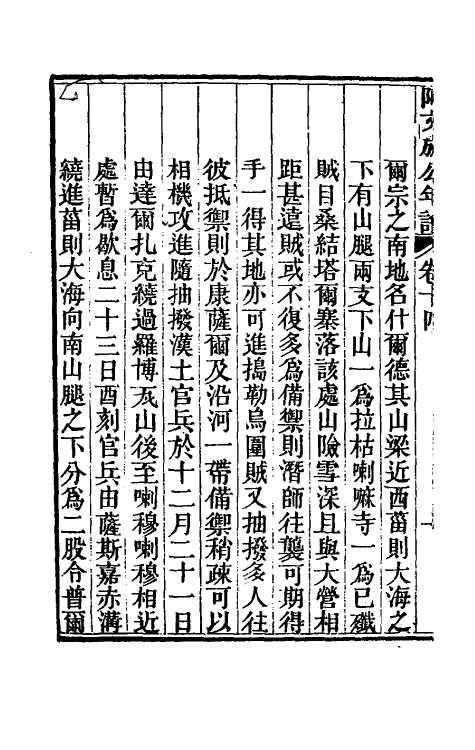 阿文成公年譜 卷十四
爾宗之南地名什爾德其山梁近西葘則大海之
下有山腿兩支下山一爲拉枯喇嘛寺一爲已殲
賊目桑結塔爾寨落該處山險雪深且與大營相
距甚遠賊或不復多爲備禦則潛師往襲可期得
手一得其地亦可進搗勒烏圍賊又抽撥多人往
彼抵禦則於康薩爾及沿河一帶備禦稍疎可以
相機攻進隨抽撥漢土官兵於十二月二十一日
由達爾扎克繞過羅博瓦山後至喇穆喇穆相近
處暫爲歇息二十三日酉刻官兵由薩斯嘉赤溝
繞進葘則大海向南山腿之下分爲二股令普爾